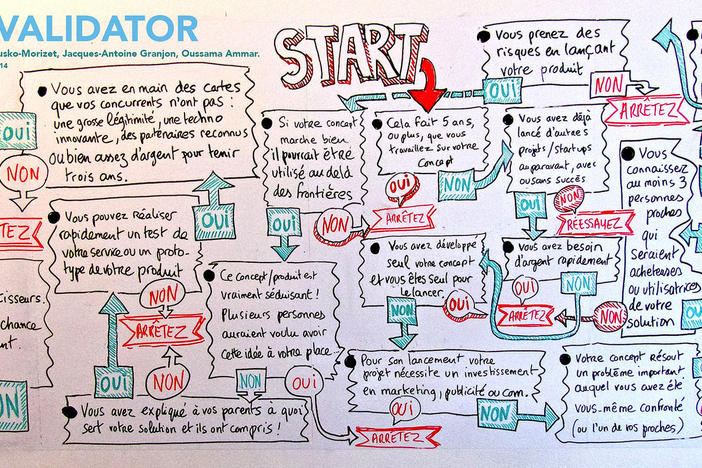 VALIDATOR
usko-Morizet, Jacques-Antoine Granjon, Oussama Ammar.
14
START
Vous prenez des
risques en lançant
votre produit
OUI
NON
ARRÊTEZ
Vous avez en main des cartes
que vos concurrents n'ont pas :
une grosse légitimité, une techno
innovante, des partenaires reconnus
Ou bien assez d'argent pour tenir
trois ans.
OUI
NON
TEZ
Si votre concept
marche bien
il pourrait être
utilisé au delà
des frontières
OUI
NON
ARRÊTEZ
Cela fait 5 ans,
ou plus, que vous
travaillez sur votre
concept
OUI
NON
Vous avez déjà
lancé d'autres
projets/startups
auparavant, avec
ou sans succès
OUI
NON
RÉESSAYEZ
Vous
connaissez
au moins 3
personnes
proches
qui
seraient
acheteuses
ou utilisatrices
de votre
solution
OU
NON
Vous pouvez réaliser
rapidement un test de
votre service ou un proto-
type de votre produit
OUI
NON
ARRÊTEZ
Vous avez développé
seul votre concept
et vous êtes seul pour
le lancer.
OUI
NON
Vous avez besoin
d'argent rapidement
OUI
NON
ARRÊTEZ
Ce concept/produit est
vraiment séduisant !
Plusieurs personnes
auraient voulu avoir
cette idée à votre place
NON
OUI
cisseurs.
chance
nt.
ON
OUI
NON
Vous avez expliqué à vos parents à quoi
sert votre solution et ils ont compris !
Pour son lancement votre
projet nécessite un investissement
en marketing, publicité ou com.
OUI
NON
ARRÊTEZ
Votre concept résout
un problème important
auquel vous avez été
vous-même confronté
(ou l'un de vos proches)